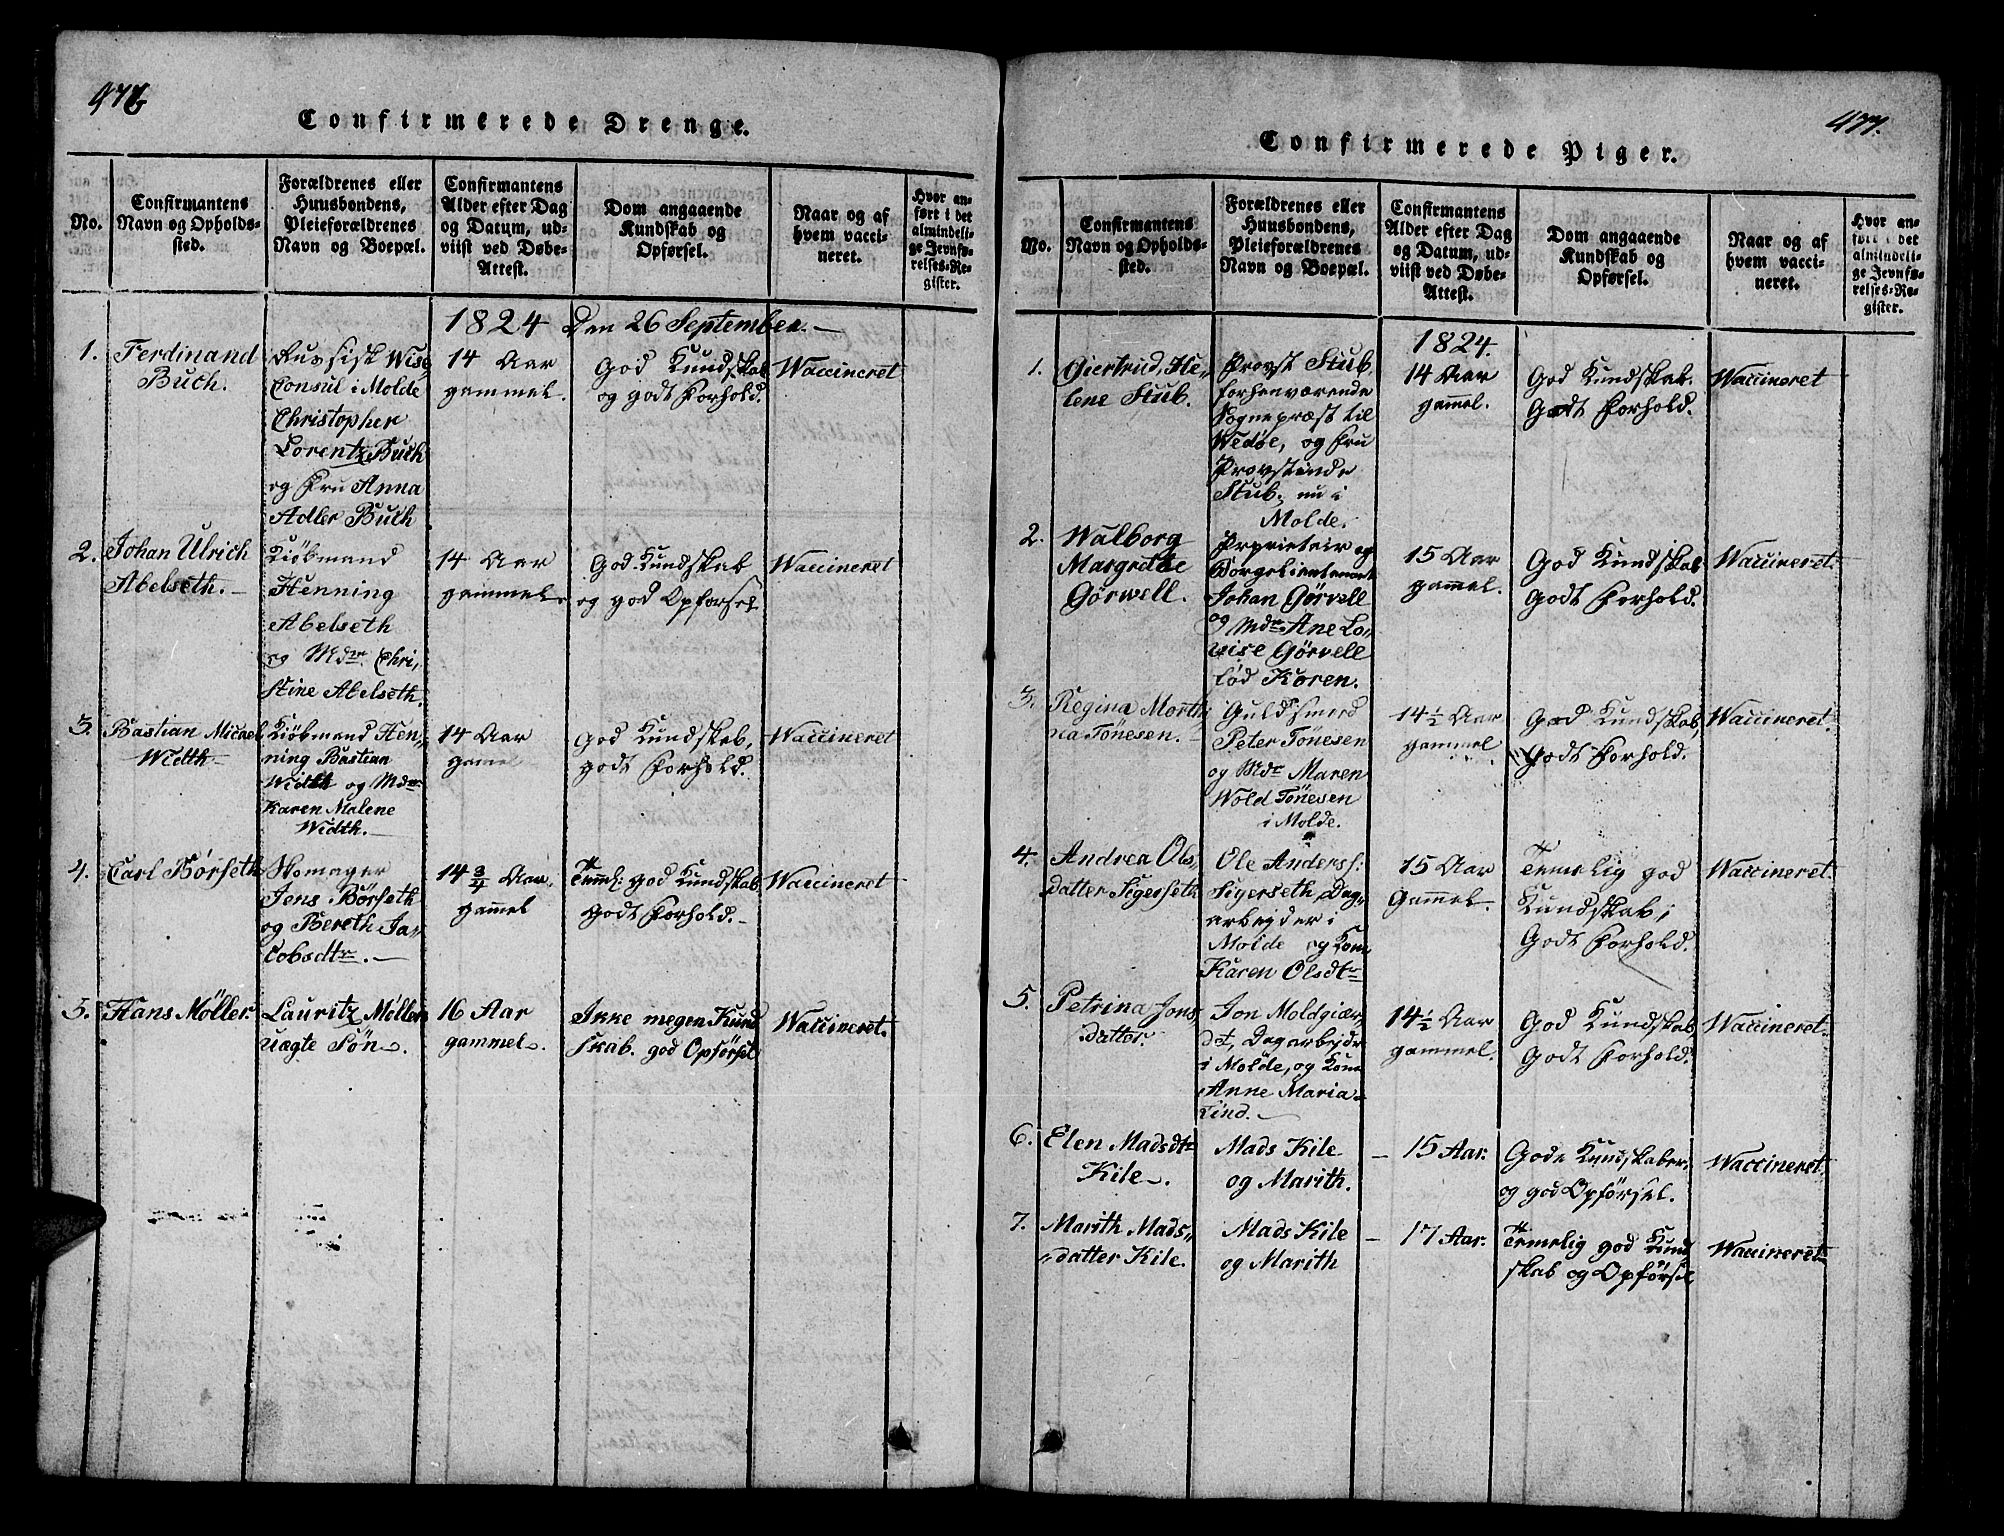 476
Confirmerede Drenge.
No.
Confirmantens
Navn og Opholds-
sted.
Forældrenes eller
Huusbondens,
Pleieforældrenes
Navn og Boepæl.
Confirmantens
Alder efter Dag
og Datum, ud-
viist ved Døbe-
Attest.
Dom angaaende
Kundskab og
Opførsel.
Naar og af
hvem vacci-
neret.
Hvor an-
ført i det
almindeli-
ge Jevnfø-
relses-Re-
gister.
1824 Den 26 September.
1.
Ferdinand
Buch.
Russisk Wise
Consul i Molde
Christopher
Lorentz Buch
og Fru Anna
Adler Buch
14 Aar
gammel.
God Kundskab
og godt Forhold.
Waccineret
2.
Johan Ulrich
Abelseth.
Kiöbmand
Henning
Abelseth
og Mdm Chri,
stine Abelseth.
14 Aar
gammel.
God Kundskab
og god Opførsel
Waccineret
3.
Bastian Michel
Width
Kiöbmand Hen-
ning Bastian
Width og Mdm
Karen Malene
Width.
14 Aar
gamel
God Kundskab,
godt Forhold.
Waccineret
4.
Carl Börseth
Skomager
Jens Börseth
og Bereth Ja-
cobsdtr.
14 3/4 Aar,
gam̅el
Tem̅el: god Kundskab
Godt Forhold.
Waccineret
5.
Hans Møller.
Lauritz Møllers
uægte Søn.
16 Aar
gammel.
Ikke megen Kund
skab. god Opførsel
Waccineret.
477.
Confirmerede Piger.
No.
Confirmantens
Navn og Opholds-
sted.
Forældrenes eller
Huusbondens,
Pleieforældrenes
Navn og Boepæl.
Confirmantens
Alder efter Dag
og Datum, ud-
viist ved Døbe-
Attest.
Dom angaaende
Kundskab og
Opførsel.
Naar og af
hvem vacci-
neret.
Hvor an-
ført i det
almindeli-
ge Jevnfø-
relses-Re-
gister.
1824.
1.
Giertrud, He-
lene Stub.
Provst Stub,
forhenværende
Sognepræst til
Wedøe, og Fru
Provstinde
Stub, nu i
Molde.
14 Aar
gam̅el.
God Kundskab.
Godt Forhold.
Waccineret
2.
Walborg
Margrethe
Görwell.
Proprietair og
Borgelieutenant
Johan Görvell
og Mdm Ane Lo-
vise Görvell
född Koren.
15 Aar
gam̅el.
God Kundskab
Godt Forhold.
Waccineret.
3.
Regina Marth-
na Tönesen.
Guldsmed
Peter Tönesen
og Mdm Maren
Wold Tönesen
i Molde.
14 1/2 Aar
gammel
God Kundskab,
Godt Forhold.
Waccineret.
4.
Andrea Ols,
datter Sigerseth
Ole Anderss:
Sigerseth, Dag-
arbejder i
Molde og Kone
Karen Olsdtr
15 Aar
Gam̅el.
Temelig god
Kundskab,
Godt Forhold.
Waccineret.
5.
Petrina Jons,
datter.
Jon Moldgiær-
det, Dagarbejder
i Molde, og Kone
Anne Maria
Lind.
14 1/2 Aar
gammel.
God Kundskab
Godt Forhold.
Waccineret.
6.
Elen Madsdtr
Kile.
Mads Kile
og Marith.
15 Aar.
Gode Kundskaber,
og god Opførsel.
Waccineret.
7.
Marith Mads-
datter Kile.
Mads Kile
og Marith
17 Aar.
Temelig god Kund
skab og Opførsel
Waccineret